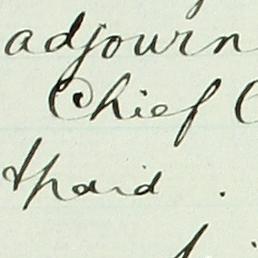 adjourn
Chief
paid .